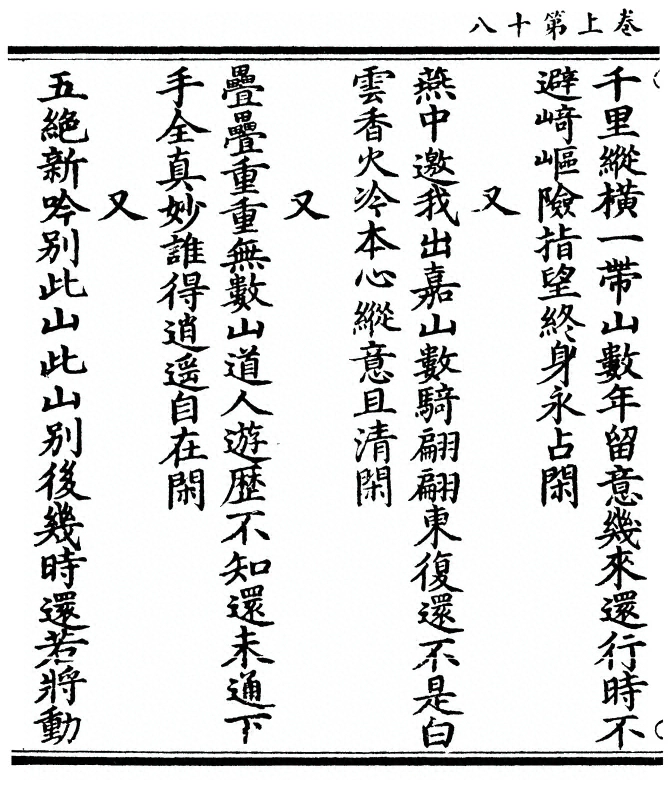 卷上第十八
千里縱橫一帶山數年留意幾來還行時不
避崎嶇險指望終身永占閑
又
燕中邀我出嘉山數騎翩翩東復還不是白
雲香火冷本心縱意且清閑
又
疊疊重重無數山道人遊歷不知還未通下
手全真妙誰得逍遥自在閑
又
五絕新吟別此山此山別後幾時還若將動